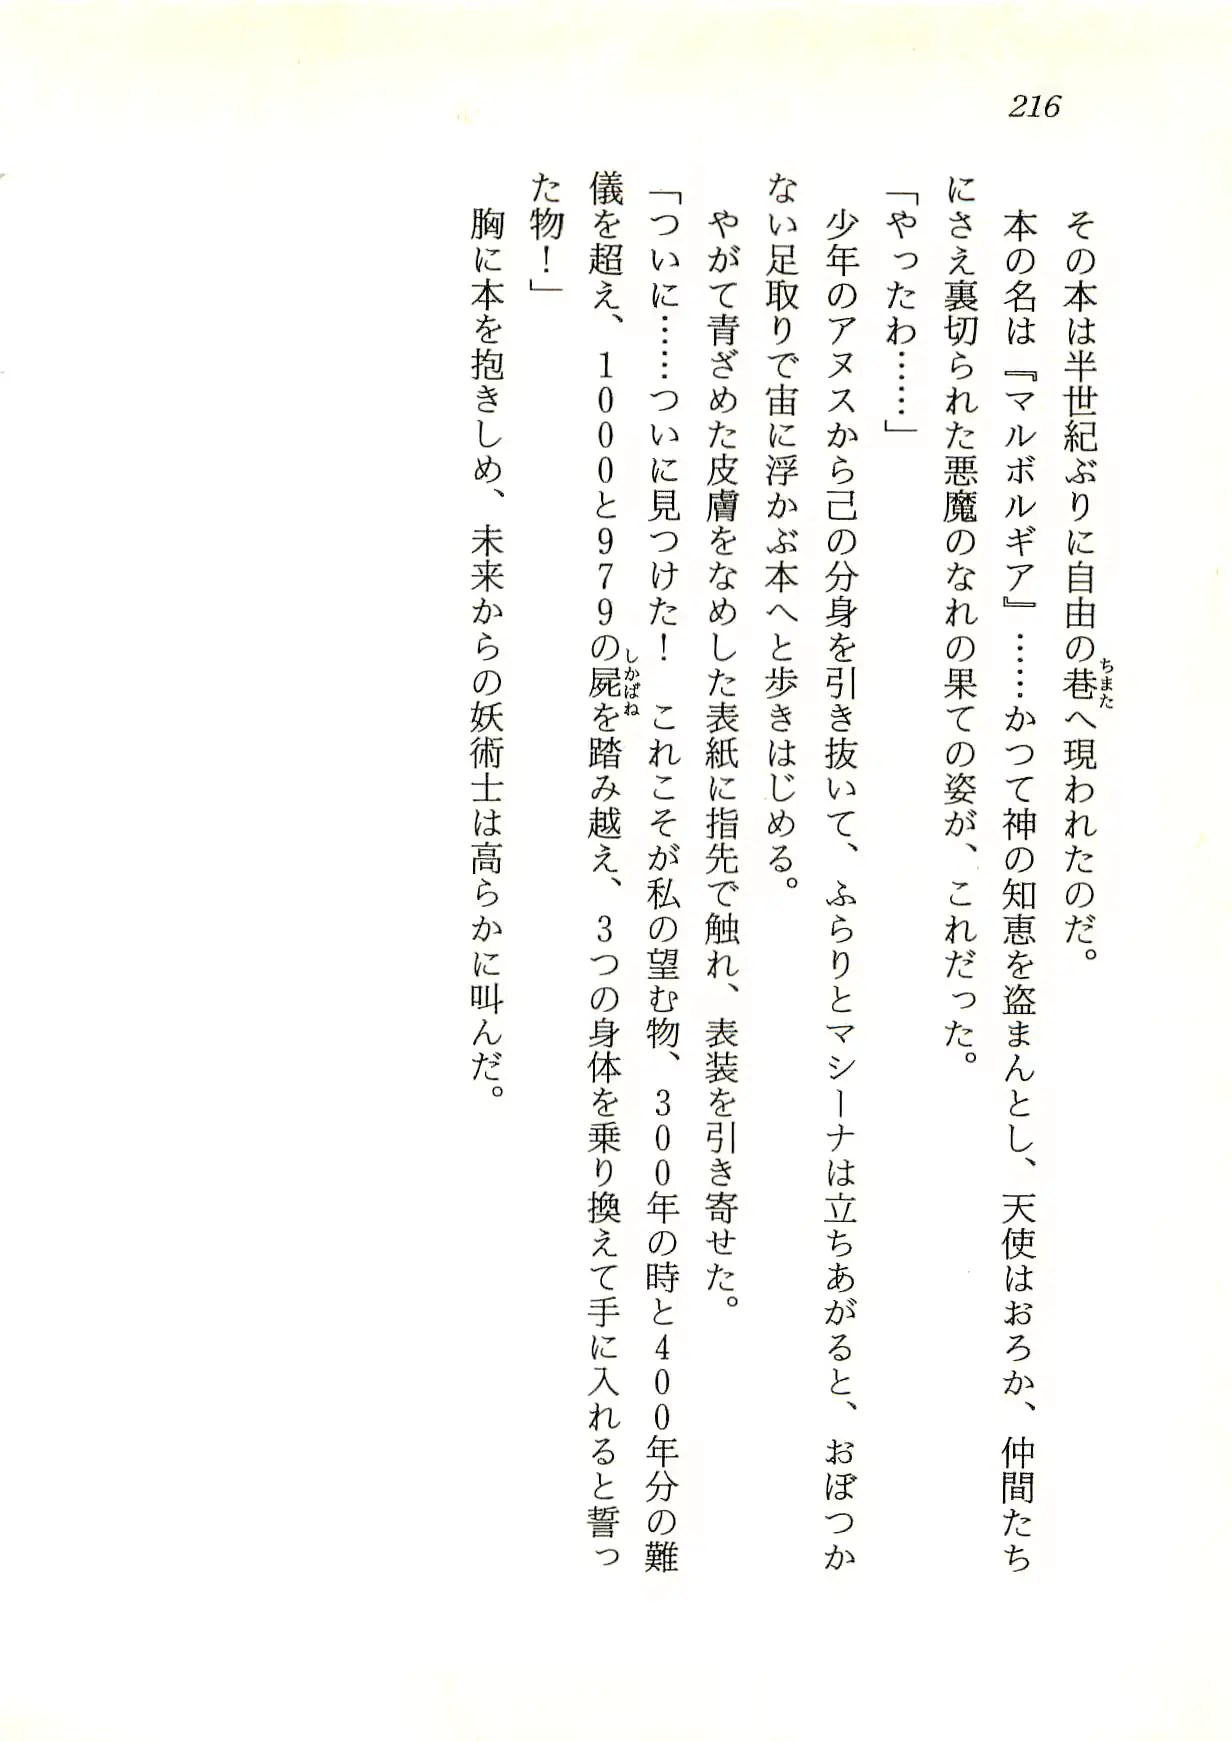 216
その本は半世紀ぶりに自由の巷へ現われたのだ。
ちまた
本の名は『マルボルギア』……かつて神の知恵を盗まんとし、天使はおろか、仲間たち
にさえ裏切られた悪魔のなれの果ての姿が、これだった。
「やったわ……」
ふらりとマシーナは立ちあがると、おぼつか
ない足取りで宙に浮かぶ本へと歩きはじめる。
やがて青ざめた皮膚をなめした表紙に指先で触れ、表装を引き寄せた。
「ついに……ついに見つけた！　これこそが私の望む物、300年の時と400年分の難
儀を超え、1000と979の屍を踏み越え、3つの身体を乗り換えて手に入れると誓っ
しかばね
た物！」
胸に本を抱きしめ、未来からの妖術士は高らかに叫んだ。